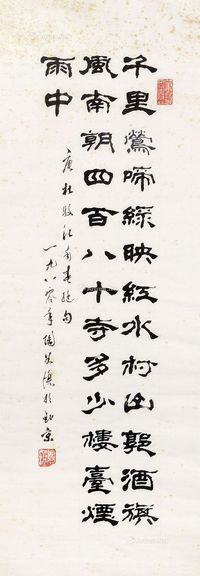 千里鶯啼綠映紅水村山郭酒旗
風南朝四百八十寺多少樓臺煙
雨中
唐杜牧江南春絕句
一九八零年